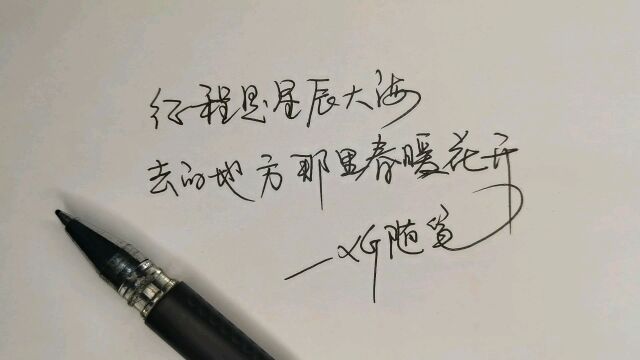 行程是星辰大海
去的地方那里春暖花开
—XG随笔